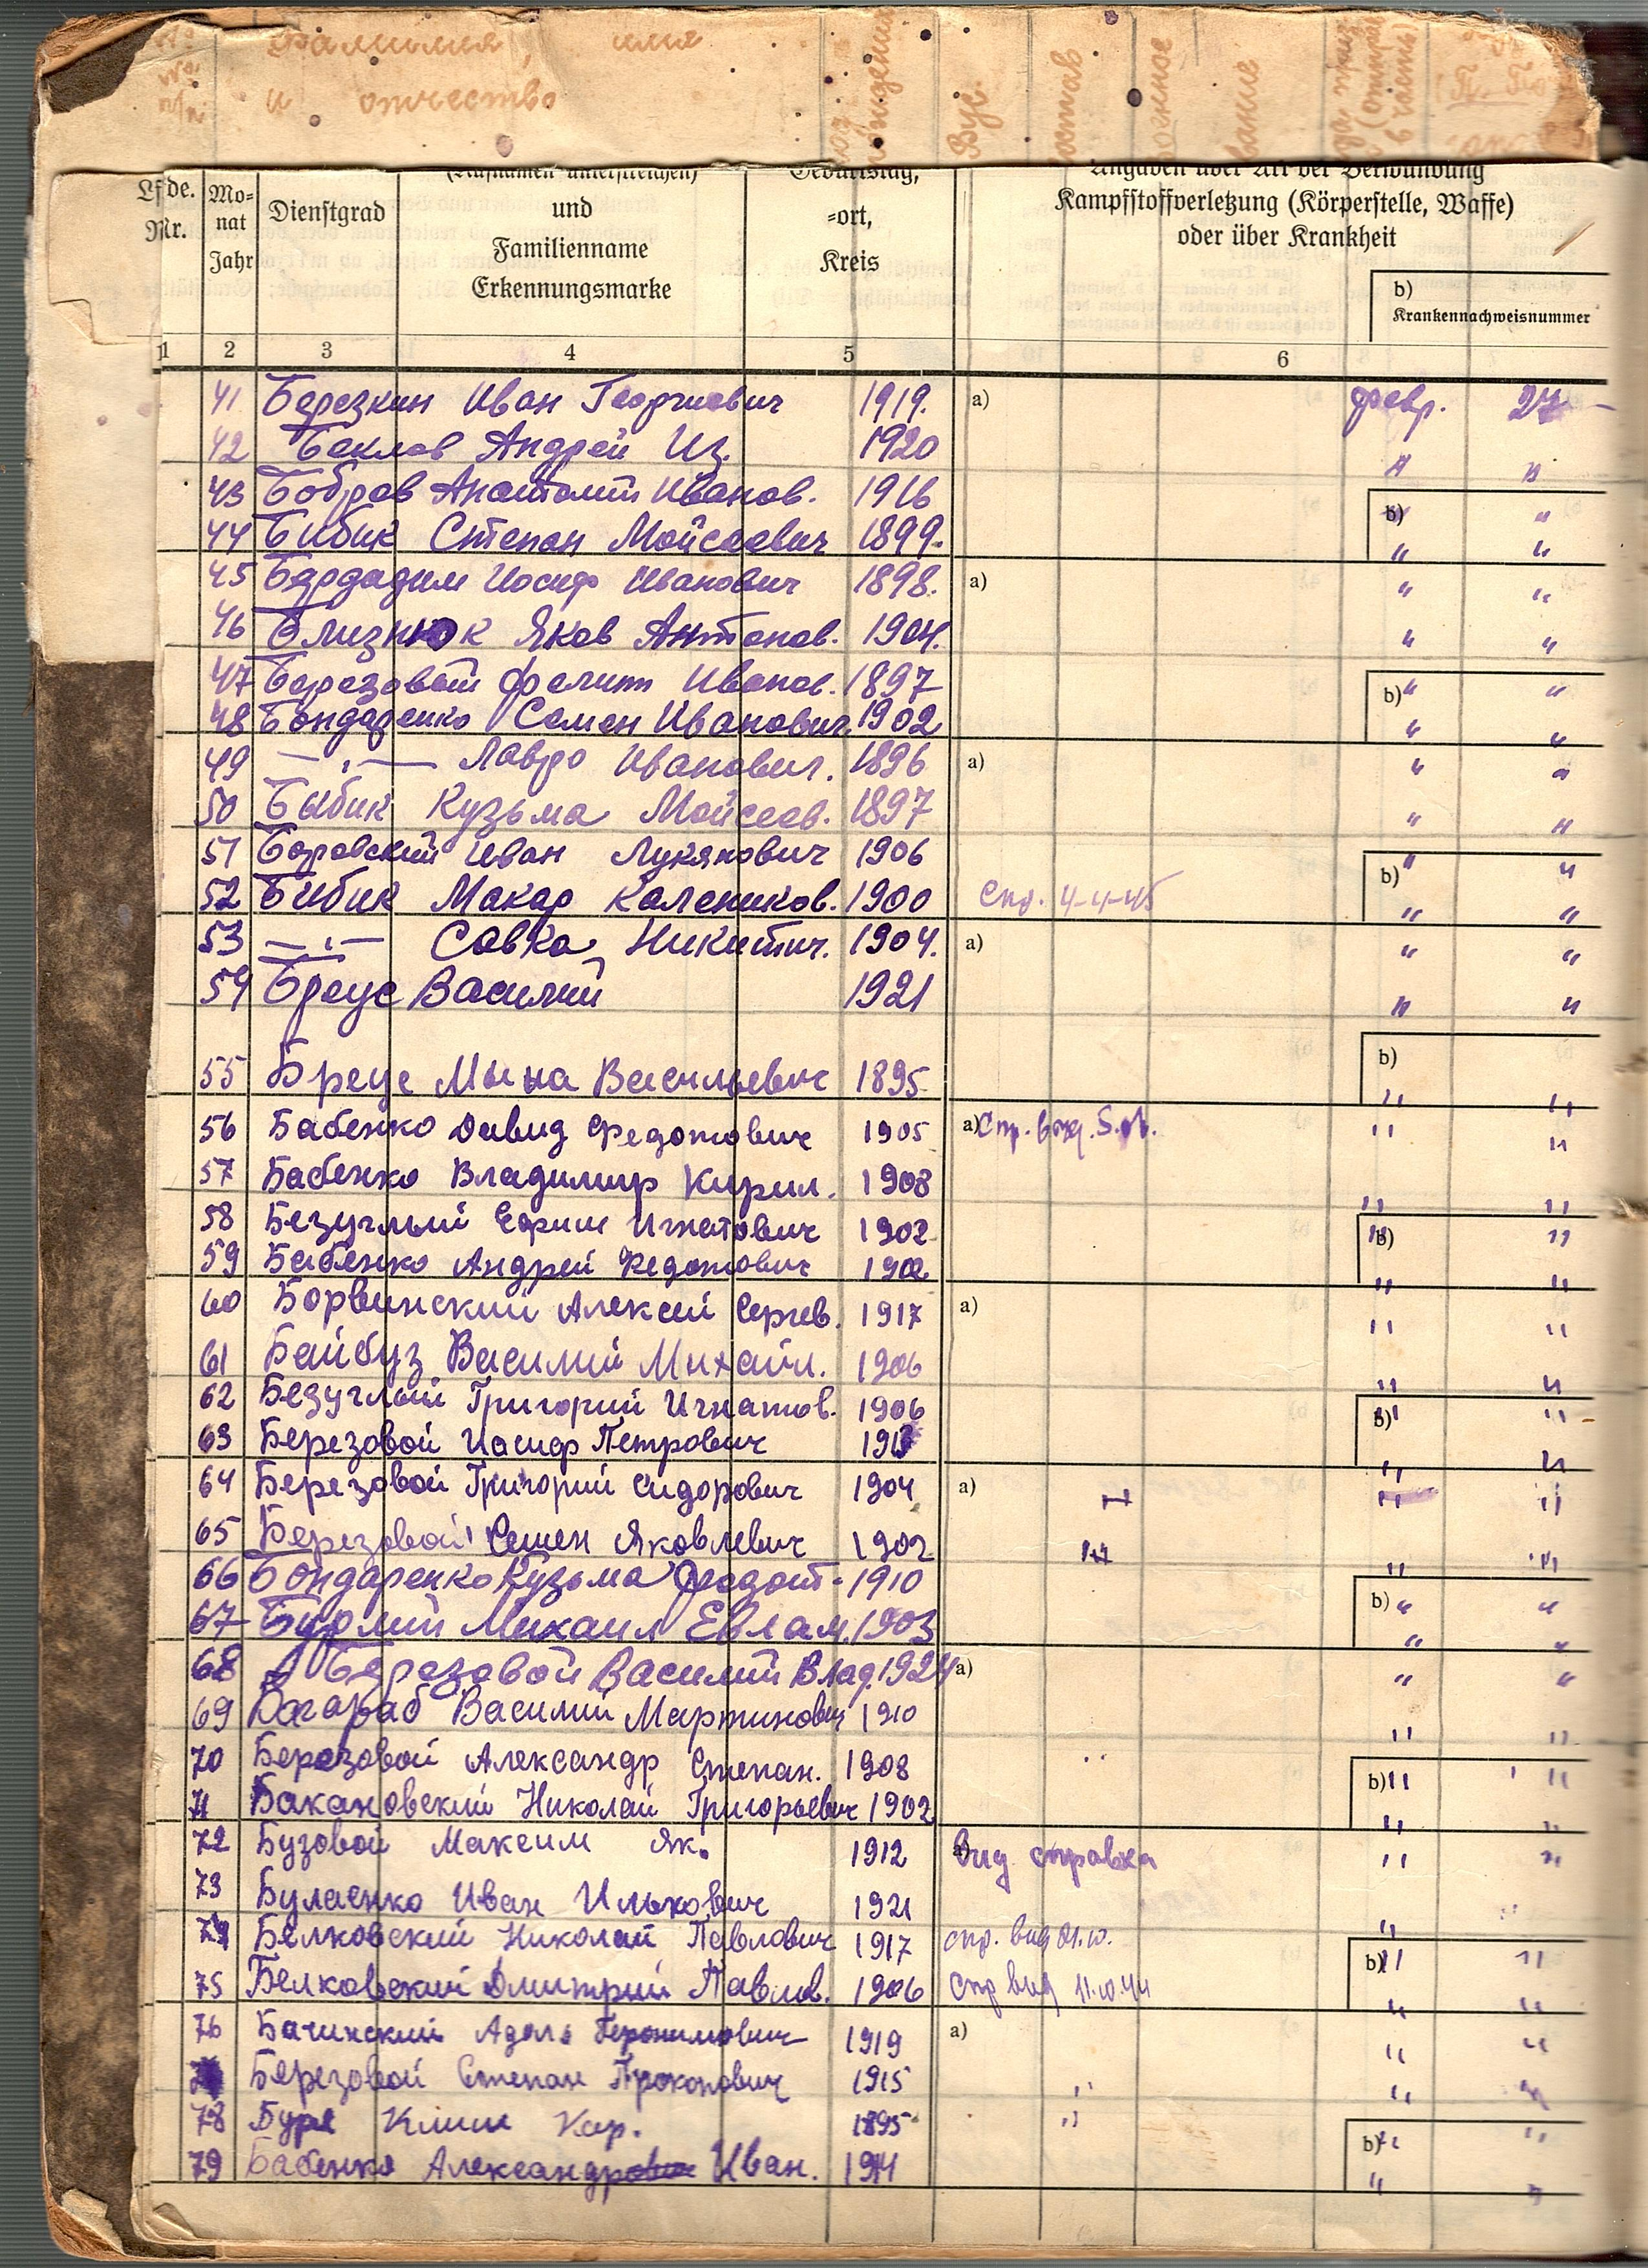 Фамилия, имя
и отчество
рождения
Вус.
состав
звание
(Rufnamen unterstreichen) Geburtstag, Angaben über Art der Verwundung
Lfde. Mo- Dienstgrad und =ort, Kampfstoffverletzung (Körperstelle, Waffe)
Nr. nat Familienname Kreis oder über Krankheit
Jahr Erkennungsmarke b)
Krankennachweisnummer
1 2 3 4 5 6
41 Березкин Иван Георгиевич 1919. a) февр. 24
42 Беклов Андрей Из. 1920 " "
43 Бобров Анатолий Иванов. 1916 b) "
44 Бибик Степан Мойсеевич 1899. " "
45 Бардадим Иосиф Иванович 1898. a) " "
46 Близнюк Яков Антонов. 1904. " "
47 Березовый Филипп Иванов. 1897 b) " "
48 Бондаренко Семен Иванович 1902 " "
49 — " — Лавро Иванович. 1896 a) " "
50 Быбик Кузьма Мойсеев. 1897 " "
51 Боровский Иван Лукянович 1906 b) " "
52 Бибик Макар Калеников. 1900 Спр. 4-4-45 " "
53 — " — Савка Никитич. 1904. a) " "
54 Бреус Василий 1921 " "
55 Бреус Мына Васильевич 1895 b) " "
56 Бабенко Давид Федотович 1905 a) " "
57 Бабенко Владимир Кирил. 1908 " "
58 Безуглый Ефим Игнатович 1902 b) " "
59 Бабенко Андрей Федотович 1902 " "
60 Борвинский Алексей Сергев. 1917 a) " "
61 Байбуз Василий Михайл. 1906 " "
62 Безуглый Григорий Игнатов. 1906 b) " "
63 Березовой Иасиф Петрович " "
64 Березовой Григорий Сидорович 1904 a) " "
65 Березовой Семен Яковлевич 1902 " "
66 Бондаренко Кузьма Федот. 1910 b) " "
67 Бурлий Михаил Евлам. 1903 " "
68 Березовой Василий Влад. 1924 a) " "
69 Василий Мартинович 1910 " "
70 Березовой Александр Степан. 1908 " b) " "
71 Бакановский Николай Григорьевич 1902 " "
72 Бузовой Максим Як. 1912 a) Вид справка " "
73 Булаенко Иван Илькович 1921 " "
74 Белковский Николай Павлович 1917 спр. вид b) " "
75 Белковский Дмитрий Павлов. 1906 Спр вид 11.10.44 " "
76 Бачинский Адоль Геронимович 1919 a) " "
Березовой Степан Прокопович 1915 " " "
78 Буря Клим Кар. 1895 " b) " "
79 Бабенко Александр Иван. " "